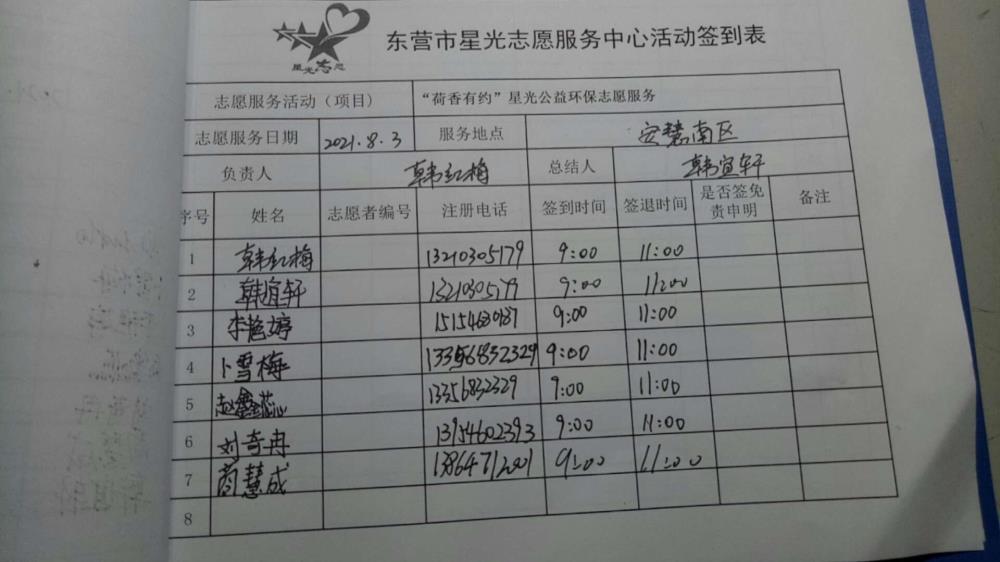 星光志愿
东营市星光志愿服务中心活动签到表
志愿服务活动（项目） “荷香有约”星光公益环保志愿服务
志愿服务日期 2021.8.3 服务地点 安慧南区
负责人 韩红梅 总结人 韩宜轩
序号 姓名 志愿者编号 注册电话 签到时间 签退时间 是否签免责申明 备注
1 韩红梅 13210305179 9:00 11:00
2 韩谊轩 13210305179 9:00 11:00
3 李艳婷 9:00 11:00
4 卜雪梅 9:00 11:00
5 赵鑫蕊 13356832329 9:00 11:00
6 刘奇冉 13954602393 9:00 11:00
7 慧成 13864712001 9:00 11:00
8